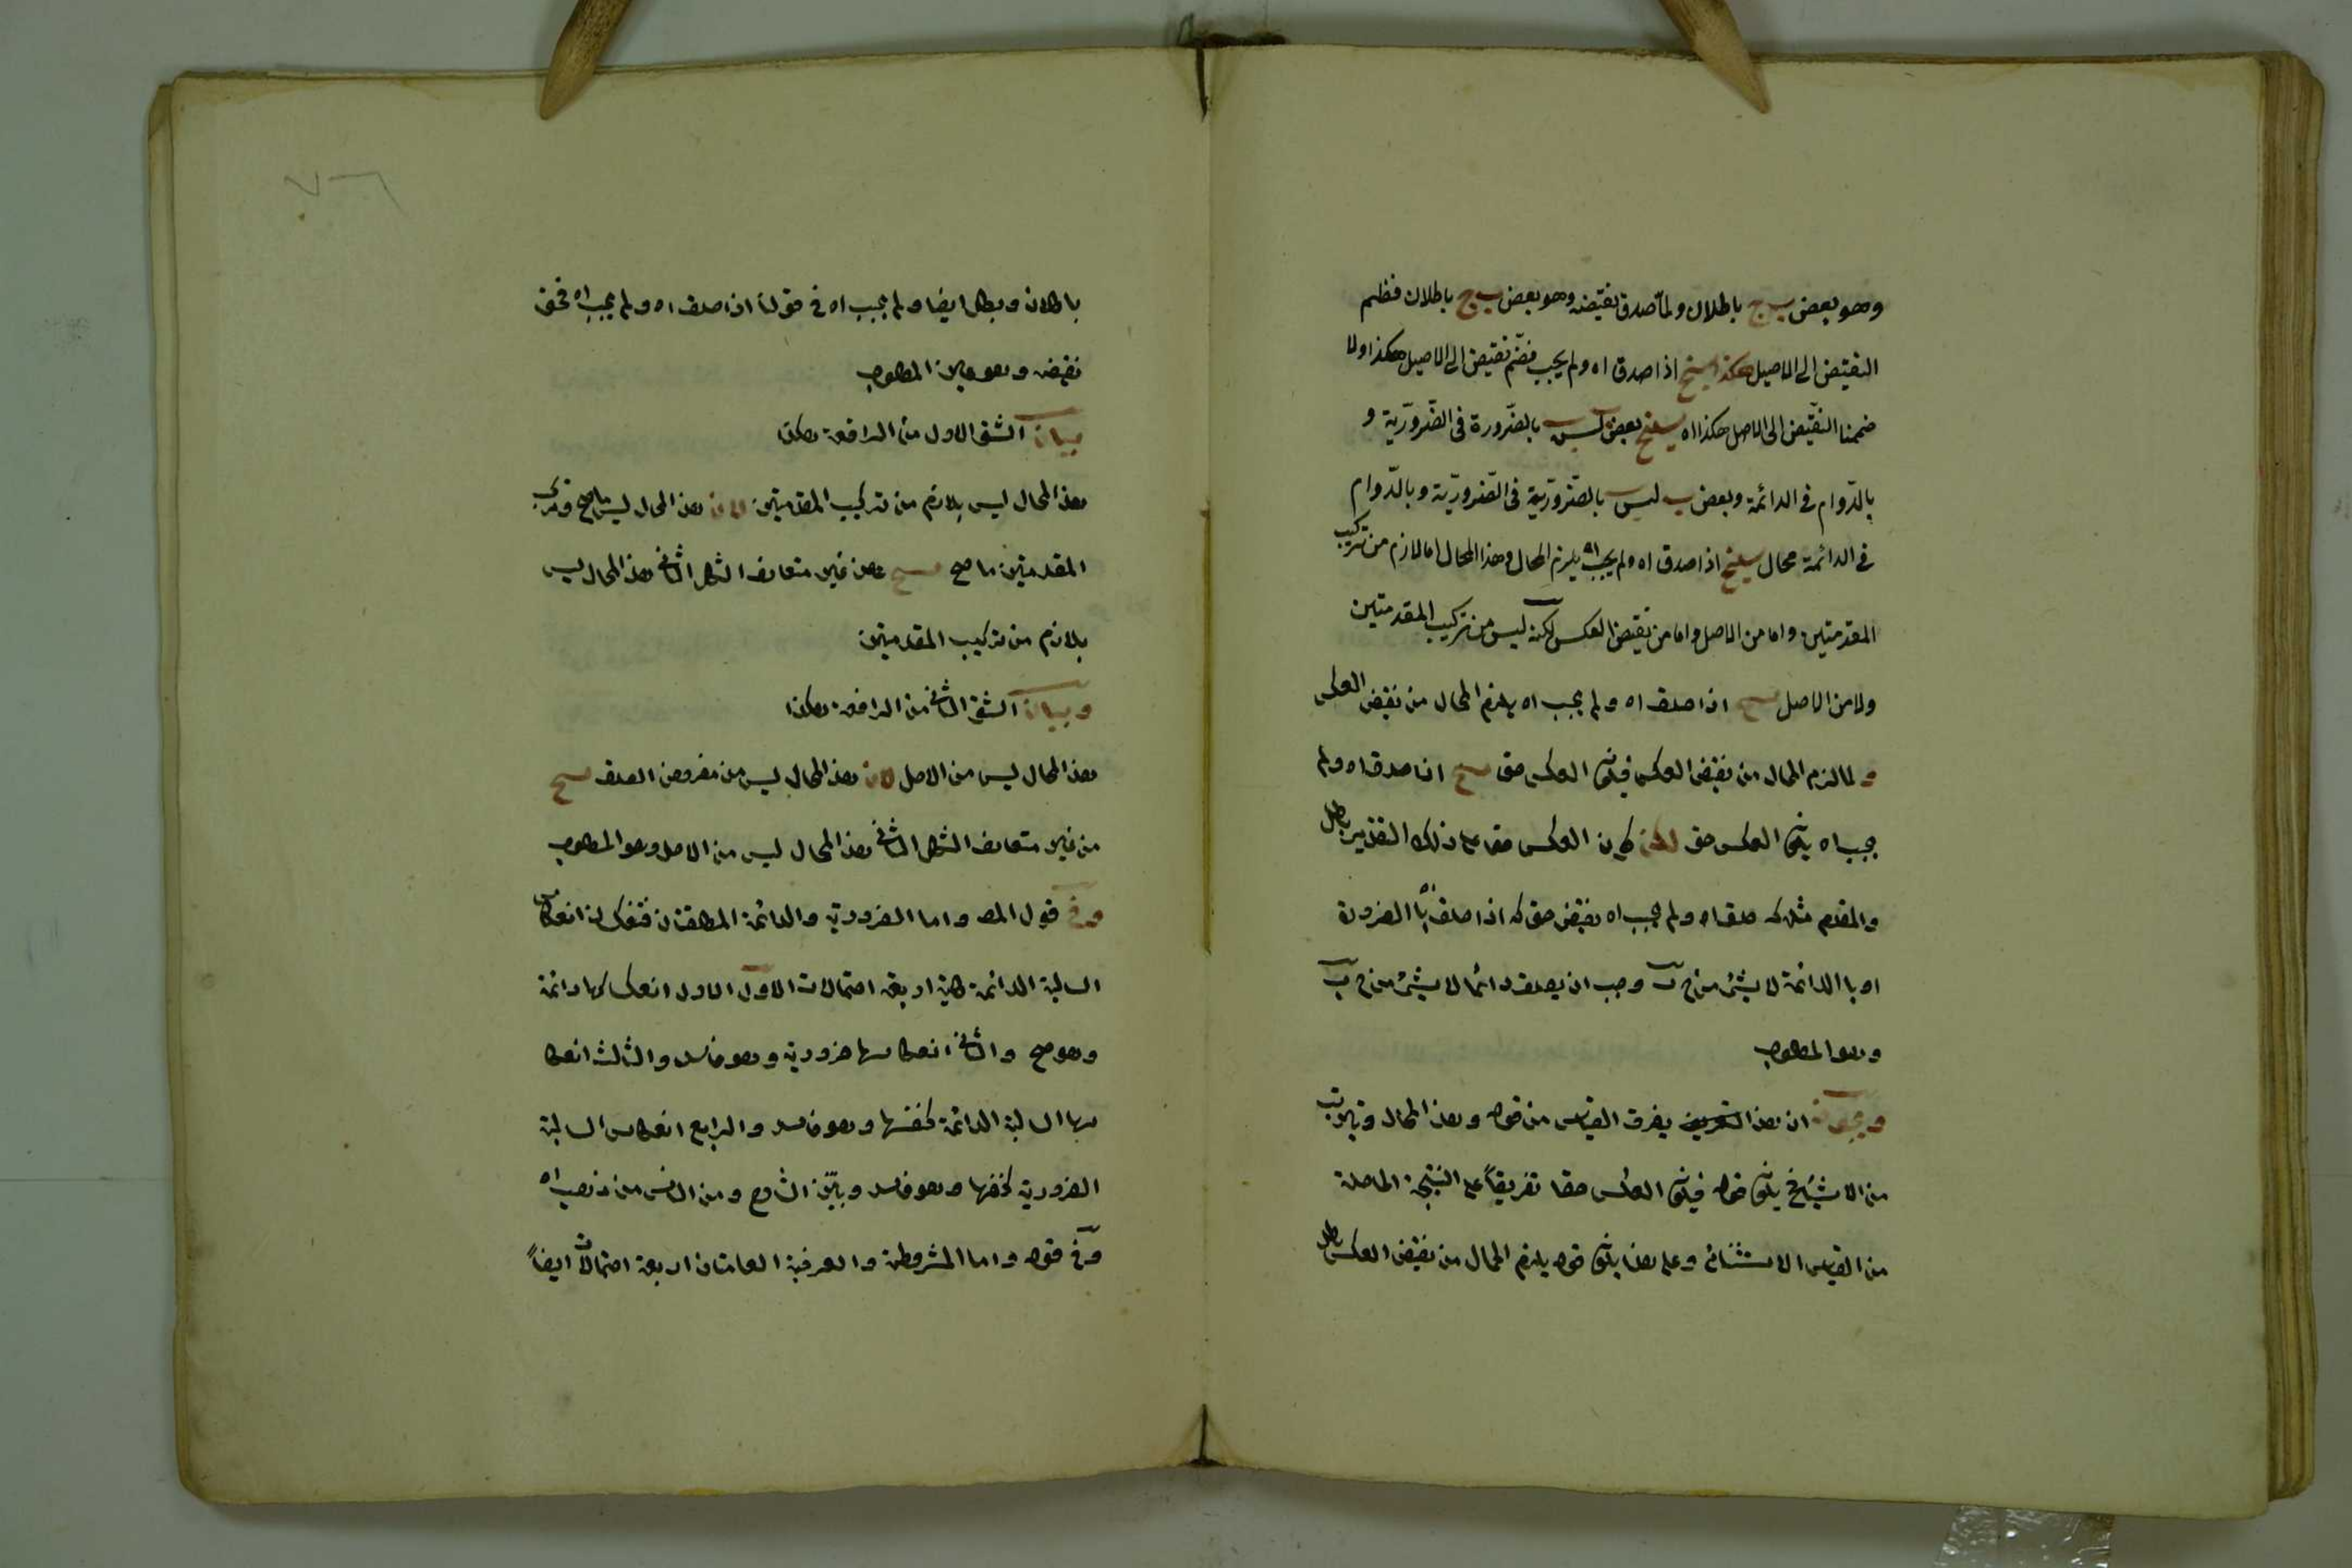 وهو بعض ب ج باطلاق ولمّا صدق نقيضه وهو بعض ب ج باطلاق فنظم
النقيض الى الاصل هكذا ينتج اذا صدق اه ولم يجب فضم نقيض الى الاصل هكذا ولا
ضممنا النقيض الى الاصل هكذا اه ينتج بعض ب ليس ب بالضرورة فى الضرورية و
بالدوام فى الدائمة وبعض ب ليس ب بالضرورية فى الضرورية وبالدوام
فى الدائمة محال ينتج اذا صدق اه ولم يجب اه يلزم المحال وهذا المحال اما لازم من تركيب
المقدمتين واما من الاصل واما من نقيض العكس لكنه ليس من تركيب المقدمتين
ولا من الاصل ينتج اذا صدق اه ولم يجب اه يلزم المحال من نقيض العكس
ولما لزم المحال من نقيض العكس فيكون العكس حق ينتج اذا صدق اه ولم
يجب اه يكون العكس حق لكن كون العكس حق على ذلك التقدير باطل
والمقدم مثله صدق اه ولم يجب اه نقيض حق كه اذا صدق با الضرورة
او با الدائمة لا شئ من ج ب وجب ان يصدق دائما لا شئ من ج ب
وهو المطلوب
ان هذا التعريف يفرق القياس من قوله وهذا المحال
من الا يكون قوله فيكون العكس حقا تفريقاً على النتيجة الحاصلة
من القياس الاستثنائى وعلى هذا يكون قوله يلزم المحال من نقيض العكس باطل
باطلاق وبطل ايضا ولم يجب اه فى قولنا اذا صدق اه ولم يجب اه فحق
نقيضه وهو عين المطلوب
بيان الشق الاول من الرافعة هكذا
هذا المحال ليس بلازم من تركيب المقدمتين لان هذا المحال ليس ما صح
المقدمتين ما صح ينتج من غير متعارف الشكل الثانى هذا المحال ليس
بلازم من تركيب المقدمتين
وبيان الشق الثانى من الرافعة هكذا
هذا المحال ليس من الاصل لان هذا المحال ليس من مفروض الصدق ينتج
من غير متعارف الشكل الثانى هذا المحال ليس من الاصل وهو المطلوب
وفى قول المص واما الضرورية والدائمة المطلقتان فتنعكسان انعكاس
السالبة الدائمة كلية اربعة احتمالات الاول الاول انعكاسها دائمة
وهو صح والثانى انعكاسها ضرورية وهو فاسد والثالث انعكا
سها السالبة الدائمة كنفسها وهو فاسد والرابع انعكاس السالبة
الضرورية كنفسها وهو فاسد وبيّن الشارح ومن الناس من ذهب اه
وفى قوله واما المشروطة والعرفية العامتان اربعة احتمالات ايضاً